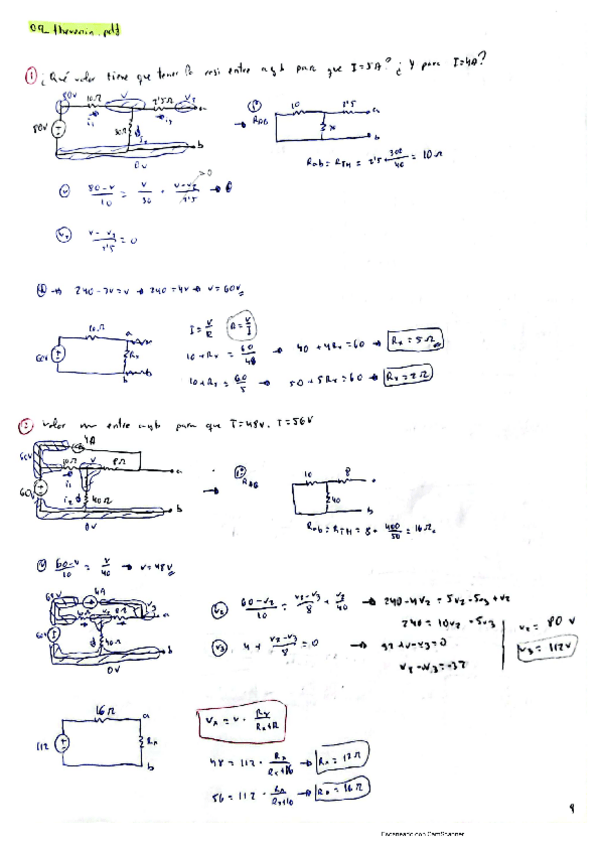 09_thevenin.pdf
① ¿Qué valor tiene que tener la resi entre a y b para que I=5A? ¿Y para I=4A?
80V 10Ω V 2'5Ω V2 a
80V i1 30Ω i2 b
0V
RAB 10 2'5 a b
Rab = RTH = 2'5 + 300/40 = 10Ω
V (80-V)/10 = V/30 + (V-V2)/2'5
(V-V2)/2'5 = 0
240-3V=V → 240=4V → V=60V
60V 10Ω a Rx b
I = V/R R = V/I
10+Rx = 60/4 → 40+4Rx=60 → Rx=5Ω
10+Rx = 60/5 → 50+5Rx=60 → Rx=2Ω
valor entre a y b para que T=48V. T=56V
60V 4A 10Ω V 8Ω a
60V i1 i2 40Ω b
0V
RAB 10 8 40 b
Rab = RTH = 8 + 400/50 = 16Ω
(60-V)/10 = V/40 → V=48V
4A V3 a
40Ω b
0V
V2 (60-V2)/10 = (V2-V3)/8 + V2/40 → 240-4V2 = 5V2-5V3+V2
240 = 10V2-5V3
V3 4 + (V2-V3)/8 = 0 → 32+V-V3=0
V2-V3=-32
V2 = 80 V
V3 = 112V
112 16Ω a Rx b
Vx = V · Rx/(Rx+R)
48 = 112 · Rx/(Rx+16) → Rx=12Ω
56 = 112 · Rx/(Rx+16) → Rx=16Ω
Escaneado con CamScanner